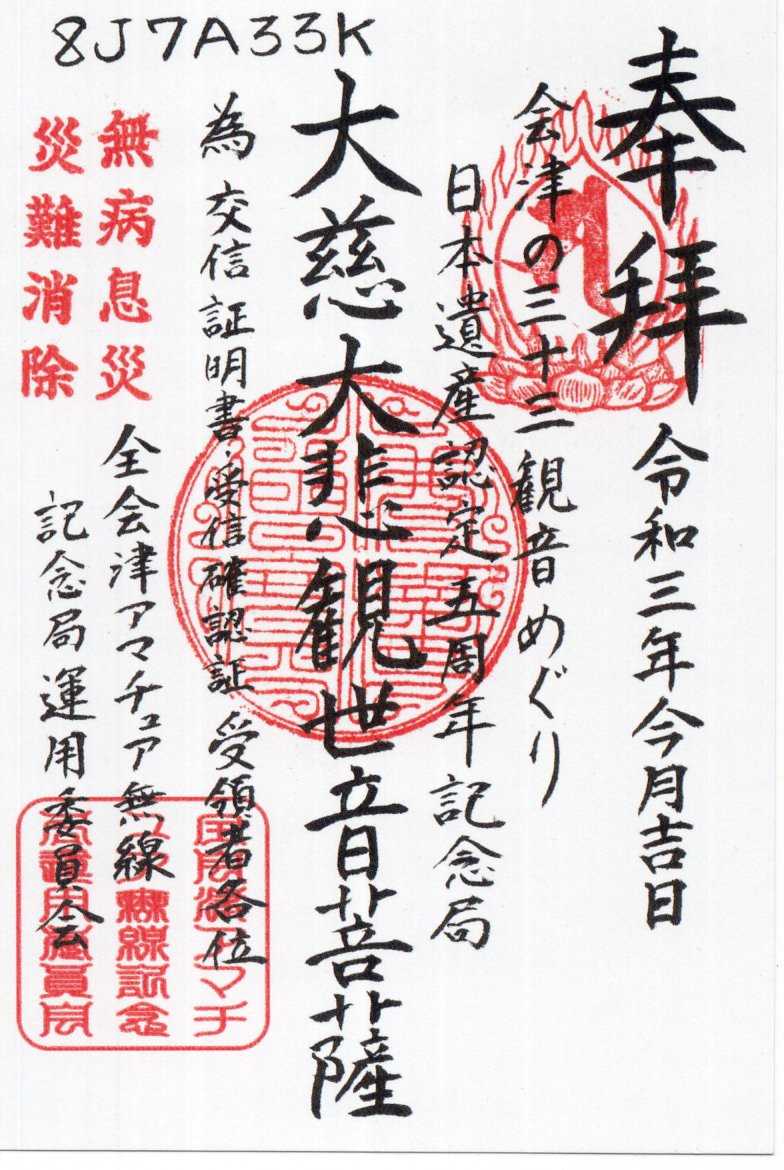 8J7A33K
奉拝
令和三年今月吉日
会津の三十三観音めぐり
日本遺産認定五周年記念局
大慈大悲観世音菩薩
為交信証明書・受信確認証受領者各位
無病息災
災難消除
全会津アマチュア無線
記念局運用委員会